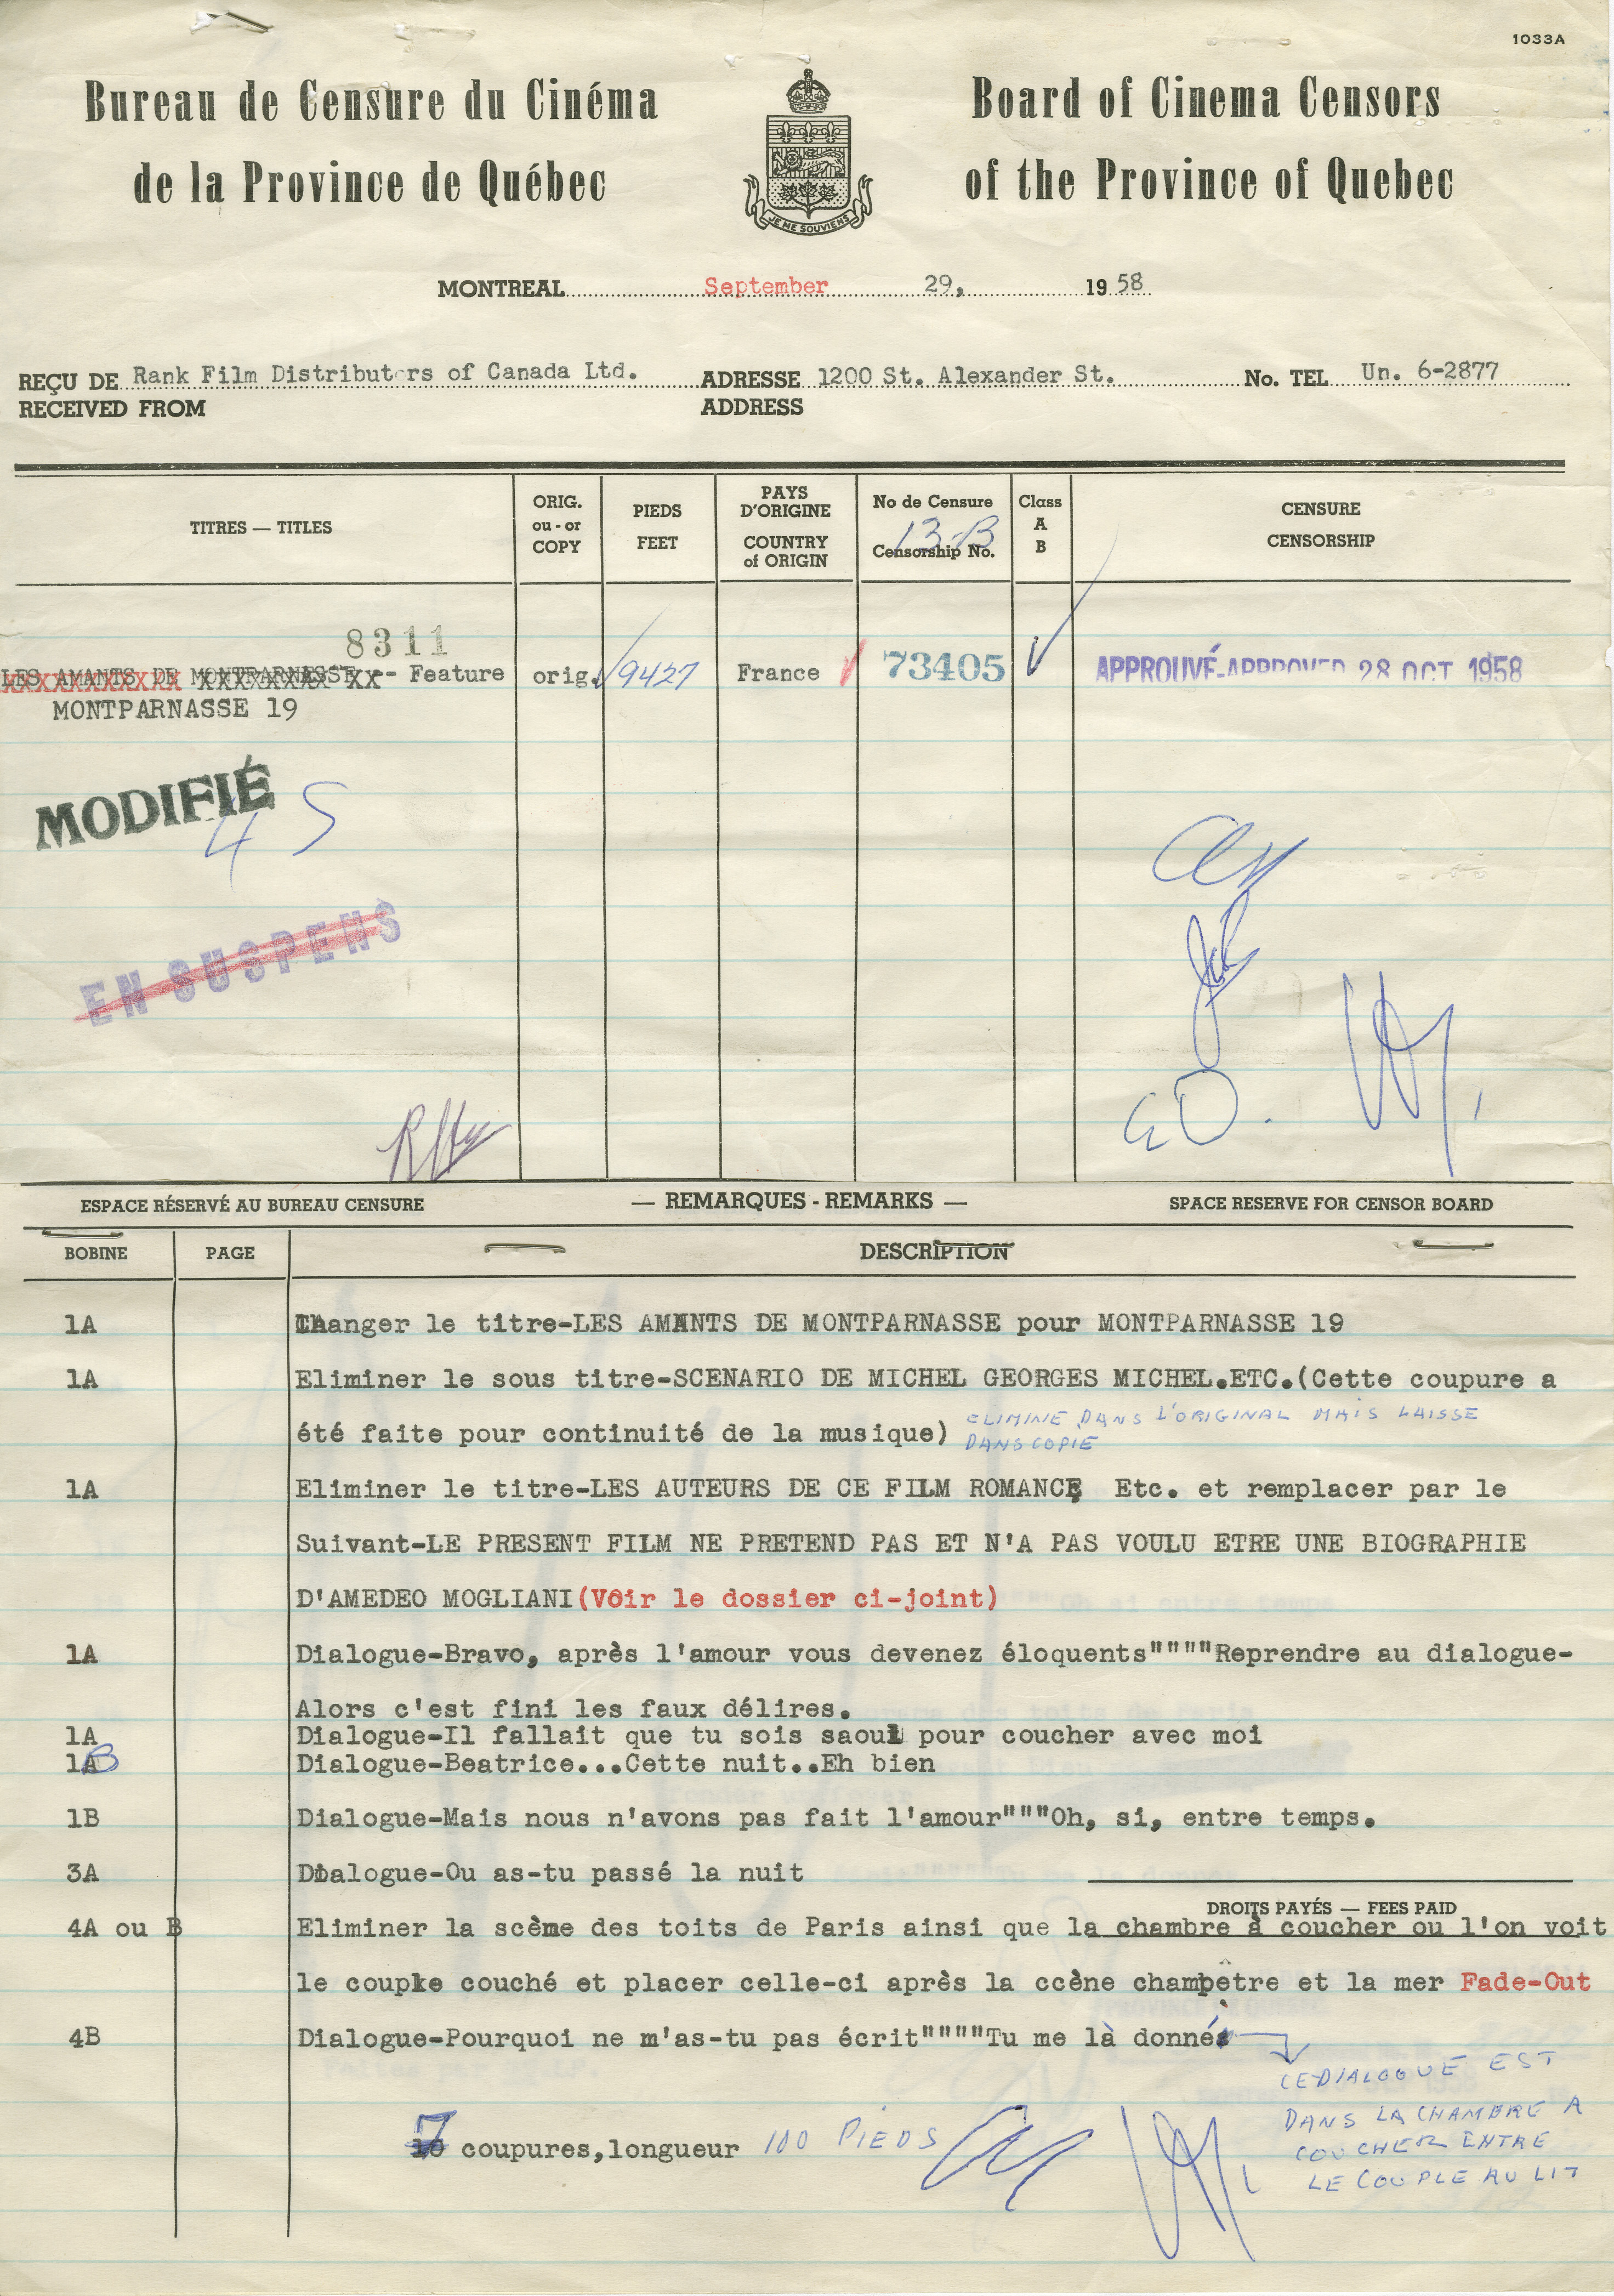 1033A
Bureau de Censure du Cinéma
de la Province de Québec
Board of Cinema Censors
of the Province of Quebec
JE ME SOUVIENS
MONTREAL September 29, 1958
REÇU DE Rank Film Distributors of Canada Ltd. ADRESSE 1200 St. Alexander St. No. TEL Un. 6-2877
RECEIVED FROM ADDRESS
TITRES — TITLES
ORIG.
ou - or
COPY
PIEDS
FEET
PAYS
D'ORIGINE
COUNTRY
of ORIGIN
No de Censure
13-B
Censorship No.
Class
A
B
CENSURE
CENSORSHIP
8311
LES AMANTS DE MONTPARNASSE -- Feature orig. 9427 France 73405 APPROUVÉ-APPROVED 28 OCT 1958
MONTPARNASSE 19
MODIFIÉ
4 S
EN SUSPENS
ESPACE RÉSERVÉ AU BUREAU CENSURE — REMARQUES - REMARKS — SPACE RESERVE FOR CENSOR BOARD
BOBINE PAGE DESCRIPTION
1A Changer le titre-LES AMANTS DE MONTPARNASSE pour MONTPARNASSE 19
1A Eliminer le sous titre-SCENARIO DE MICHEL GEORGES MICHEL.ETC.(Cette coupure a
été faite pour continuité de la musique) ELIMINE DANS L'ORIGINAL MAIS LAISSE
DANS COPIE
1A Eliminer le titre-LES AUTEURS DE CE FILM ROMANCE Etc. et remplacer par le
Suivant-LE PRESENT FILM NE PRETEND PAS ET N'A PAS VOULU ETRE UNE BIOGRAPHIE
D'AMEDEO MOGLIANI(Voir le dossier ci-joint)
1A Dialogue-Bravo, après l'amour vous devenez éloquents""""Reprendre au dialogue-
Alors c'est fini les faux délires.
1A Dialogue-Il fallait que tu sois saoul pour coucher avec moi
1B Dialogue-Beatrice...Cette nuit..Eh bien
1B Dialogue-Mais nous n'avons pas fait l'amour"""Oh, si, entre temps.
3A Dialogue-Ou as-tu passé la nuit
DROITS PAYÉS — FEES PAID
4A ou B Eliminer la scème des toits de Paris ainsi que la chambre à coucher ou l'on voit
le couple couché et placer celle-ci après la ccène champêtre et la mer Fade-Out
4B Dialogue-Pourquoi ne m'as-tu pas écrit""""Tu me là donné
CE DIALOGUE EST
DANS LA CHAMBRE A
COUCHER ENTRE
LE COUPLE AU LIT
7 coupures,longueur 100 PIEDS